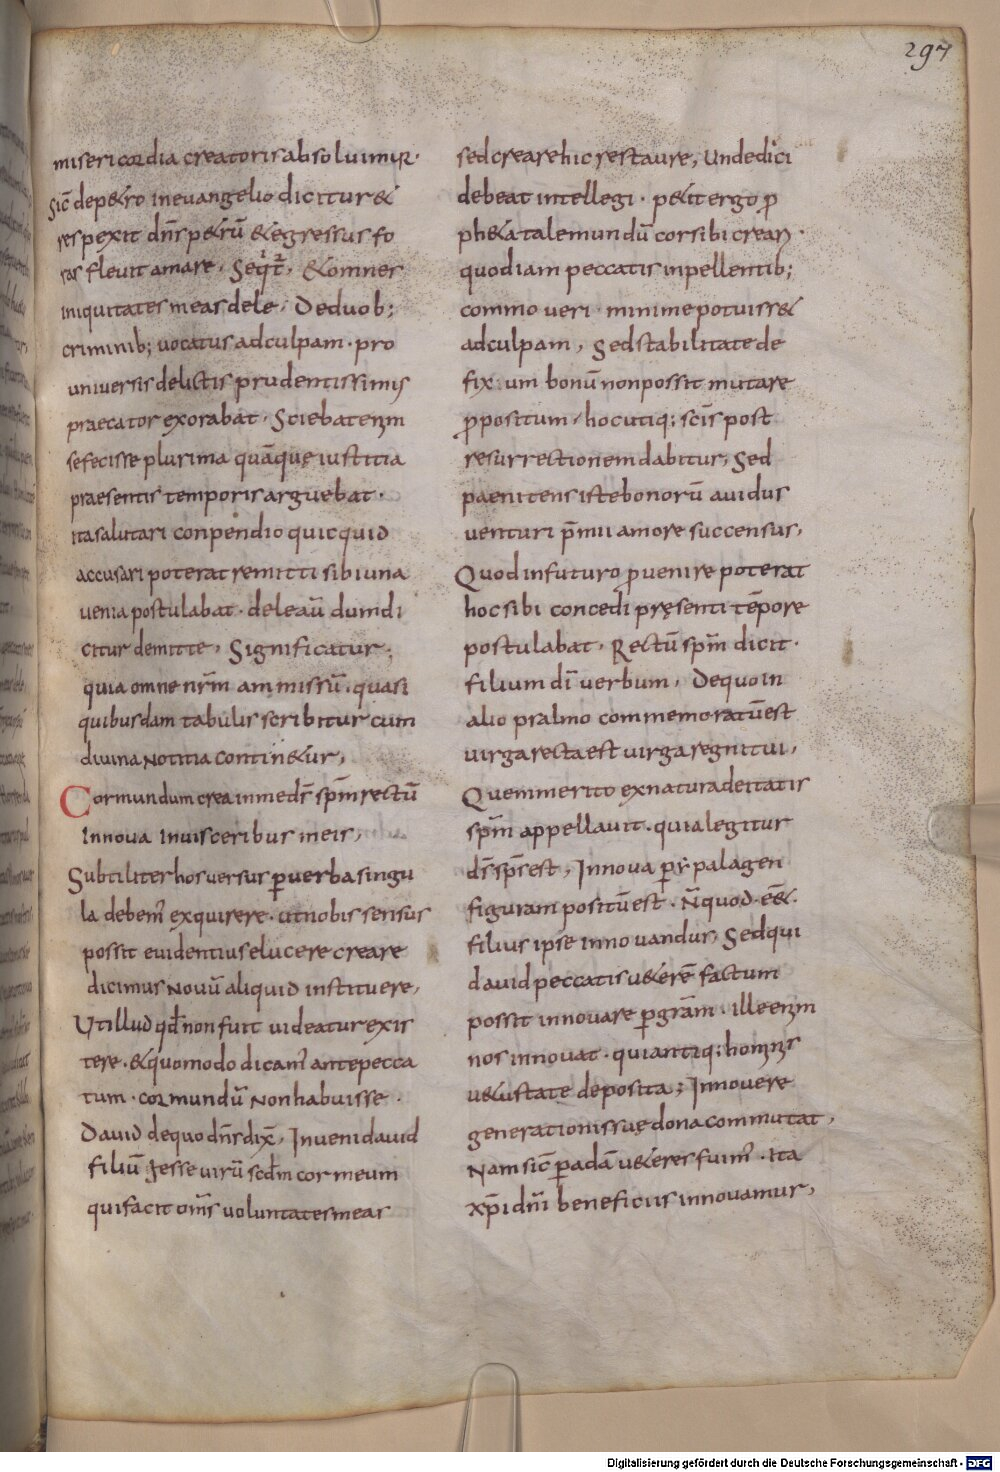 297
misericordia creatoris absoluimur.
Sic̄ de p&ro in euangelio dicitur &
respexit dn̄s p&rū & egressus fo
ras fleuit amare. Seqt̄. & omnes
iniquitates meas dele. De duob;
criminib; uocatus ad culpam. pro
uniuersis delictis prudentissimus
praecator exorabat. Sciebat enim
se fecisse plurima quā quę iustitia
praesentis temporis arguebat.
ita salutari conpendio quicquid
accusari poterat remitti sibi una
uenia postulabat. deleaū dum di
citur demitte. Significatur.
quia omne nr̄m ammissū. quasi
quibusdam tabulis scribitur cum
diuina notitia contin&ur.
Cor mundum crea in me ds̄ spm̄ rectū
Innoua in uisceribus meis.
Subtiliter hos uersus p uerba singu
la debem' exquirere. ut nobis sensus
possit euidentius elucere creare
dicimus nouū aliquid instituere.
Ut illud qd̄ non fuit uideatur exis
tere. & quomodo dicam' ante pecca
tum. cor mundū non habuisse.
Dauid de quo dn̄s dix̄. Inueni dauid
filiū Iesse uirū scdm̄ cor meum
qui facit om̄s uoluntates meas
sed creare hic restaure, Unde dici
debeat intellegi. p&it ergo p
ph&a tale mundū cor sibi creari.
quod iam peccatis inpellentib;
commoueri. minime potuiss&
ad culpam, Sed stabilitate de
fixum bonū non possit mutare
ppositum. hoc utiq; scīs post
resurrectionem dabitur, Sed
paenitens iste bonorū auidus
uenturi p̄mii amore succensus,
Quod in futuro puenire poterat
hoc sibi concedi pręsenti tēpore
postulabat. Rectū spm̄ dicit.
filium dī uerbum. De quo in
alio psalmo commemoratū est
uirga recta est uirga regni tui,
Quem merito ex natura deitatis
spm̄ appellauit. quia legitur
ds̄ sps̄ est, Innoua p ypalagen
figuram positū est. N̄ quod eēt
filius ipse innouandus, Sed qui
dauid peccatis u&erē factum
possit innouare p grām. ille enim
nos innouat. qui antiq; hominis
u&ustate deposita; In nouere
generationis suę dona commutat,
Nam sic̄ p adā u&eres fuim'. ita
xp̄i dn̄i beneficiis innouamur,
Digitalisierung gefördert durch die Deutsche Forschungsgemeinschaft - DFG